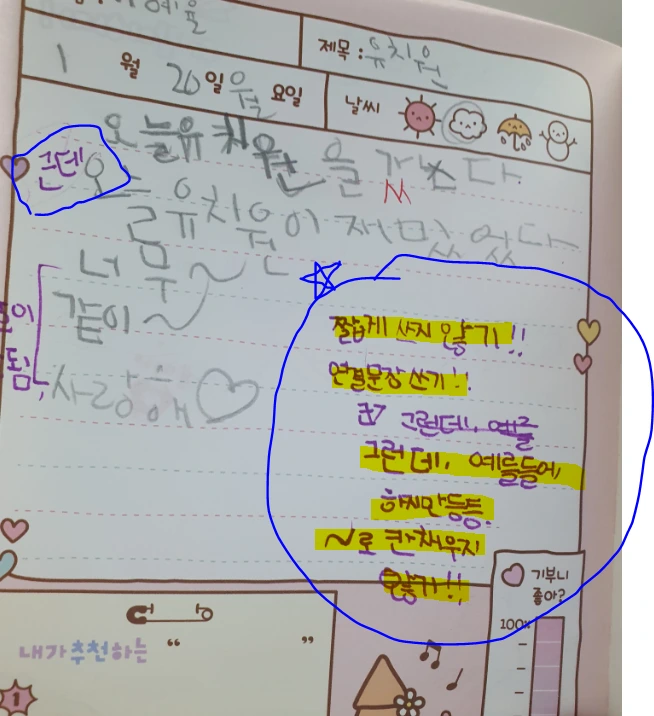 제목 : 유치원
1 월 20 일 월 요일 날씨
오늘유치원을 갔다.
근데 오늘
유치원이 재미있었다
너무~
같이~
사랑해♡
됨,
짧게 쓰지 않기!!
연결문장 쓰기!!
그런데, 예를
그런데, 예를들어,
하지만 등등.
~로 칸 채우지
않기!!
기부니
좋아?
100%
내가 추천하는 “ ”
1